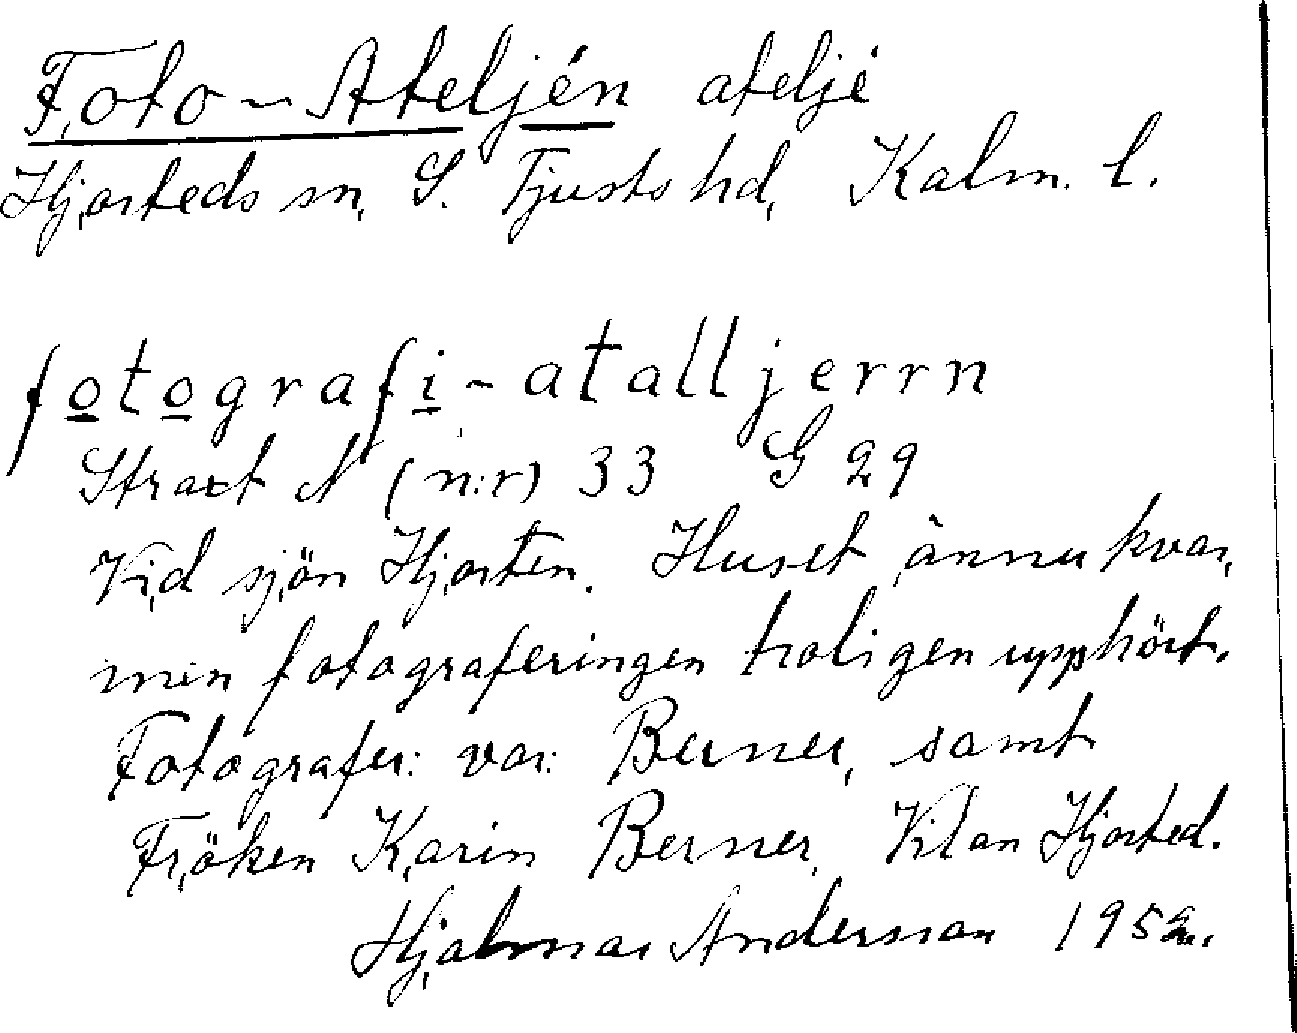 Foto-Ateljén ateljé
Hjorteds sn, S. Tjusts hd, Kalm. l.
fotografi-atalljerrn
Straxt N (n:r) 33 G 29
Vid sjön Hjorten. Huset ännu kvar,
men fotograferingen troligen upphört.
Fotografer: var: Berner, samt
Fröken Karin Berner, Vilan Hjorted.
Hjalmar Andersson 1952.